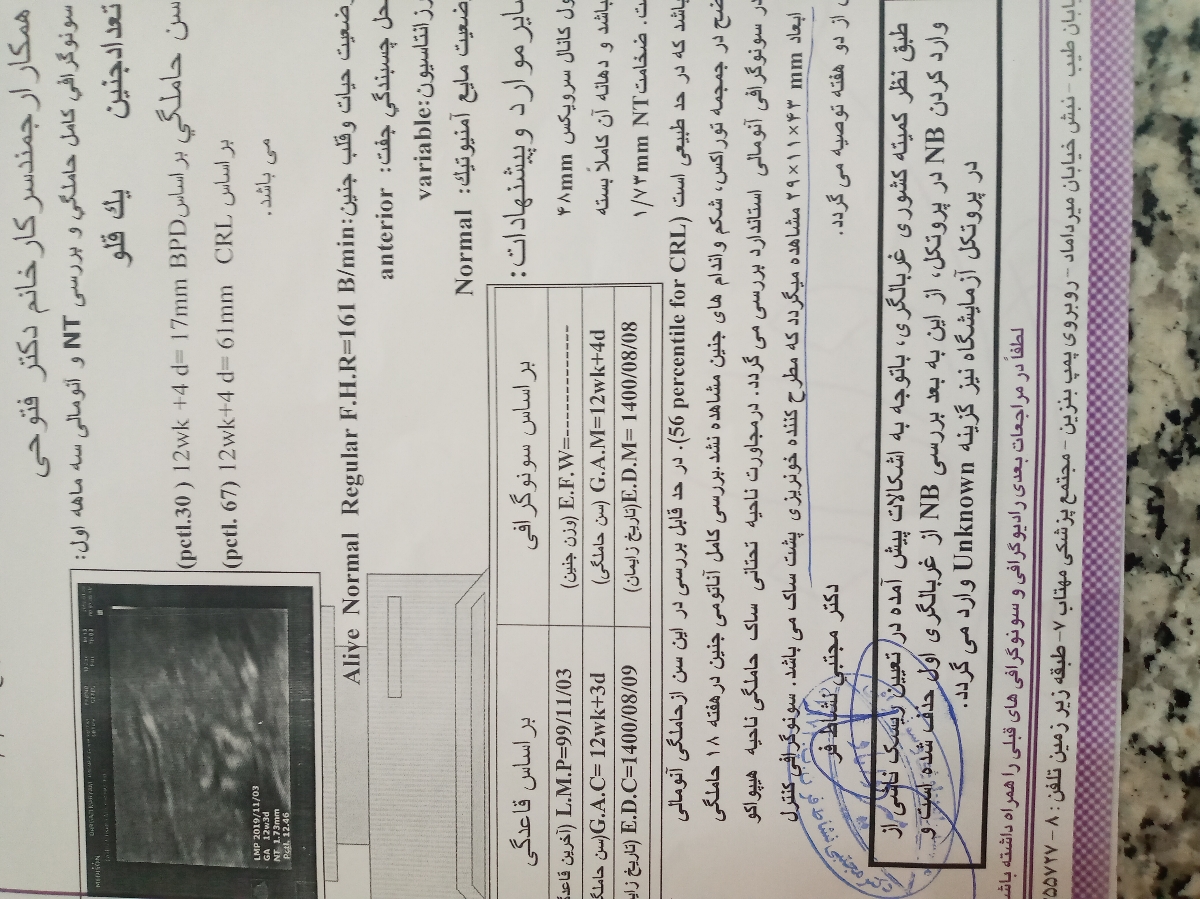 همکار ارجمند سرکار خانم دکتر فتوحی
سونوگرافی کامل حاملگی و بررسی NT و آنومالی سه ماهه اول:
تعداد جنین یک قلو
سن حاملگي بر اساس BPD 17mm =12wk +4 d ( pctl.30)
بر اساس CRL 61mm =12wk+4 d (pctl. 67)
می باشد.
وضعیت حیات وقلب جنین: Alive Normal Regular F.H.R=161 B/min
محل چسبندگي جفت: anterior
پرزانتاسیون: variable
وضعیت مایع آمنیوتیک: Normal
سایر موارد و پیشنهادات:
LMP 2019/11/03
GA 12w3d
NT 1.73mm
Pctl. 12.46
بر اساس قاعدگی
بر اساس سونوگرافی
L.M.P=99/11/03 (آخرین
E.F.W=---------------- (وزن جنین)
G.A.C= 12wk+3d (سن
G.A.M=12wk+4d (سن حاملگی)
E.D.C=1400/08/09 (تاریخ
E.D.M= 1400/08/08 (تاریخ زایمان)
طول کانال سرویکس ۴۸mm
باشد و دهانه آن کاملاً بسته
ضخامت NT ۱/۷۳mm
باشد که در حد طبیعی است (56 percentile for CRL). در حد قابل بررسی در این سن از حاملگی آنومالی
واضح در جمجمه توراکس، شکم و اندام های جنین مشاهده نشد.بررسی کامل آناتومی جنین در هفته ۱۸ حاملگی
در سونوگرافی آنومالی استاندارد بررسی می گردد. درمجاورت ناحیه تحتانی ساک حاملگی ناحیه هیپواکو
ابعاد ۲۹×۱۱×۴۳ mm مشاهده میگردد که مطرح کننده خونریزی پشت ساک می باشد. سونوگرافی کنترل
از دو هفته توصیه می گردد.
دکتر مجتبی نشاط فر
طبق نظر کمیته کشوری غربالگری، باتوجه به اشکالات پیش آمده در تعیین ریسک ناشی از
وارد کردن NB در پروتکل، از این به بعد بررسی NB از غربالگری اول حذف شده است و
در پروتکل آزمایشگاه نیز گزینه Unknown وارد می گردد.
لطفاً در مراجعات بعدی رادیوگرافی و سونوگرافی های قبلی را همراه داشته
خیابان طیب - نبش خیابان میرداماد - روبروی پمپ بنزین - مجتمع پزشکی مهتاب ۷- طبقه زیر زمین تلفن : ۸ -